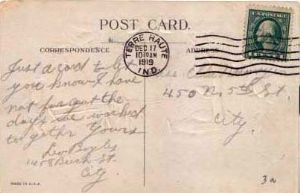 POST CARD.
CORRESPONDENCE
TERRE HAUTE
DEC 17
10 AM
1919
IND.
Just a card to let
you know I have
not forgot the
days we worked
to gether Yours
450 N. 5th St.
City.
St.
City
MADE IN U.S.A.
3a